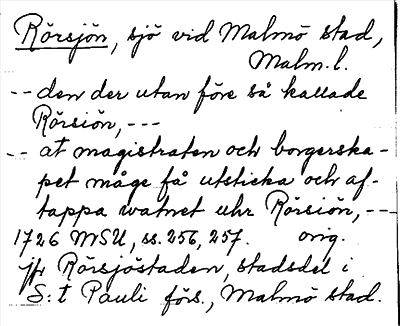 Rörsjön, sjö vid Malmö stad,
Malm.l.
-- den der utan före så kallade
Rörsiön, ---
-- at magistraten och borgerska-
pet måge få utsticka och af-
tappa watnet uhr Rörsiön, ---
1726 MSU, ss. 256, 257. orig.
jfr Rörsjöstaden, stadsdel i
S:t Pauli förs., Malmö stad.